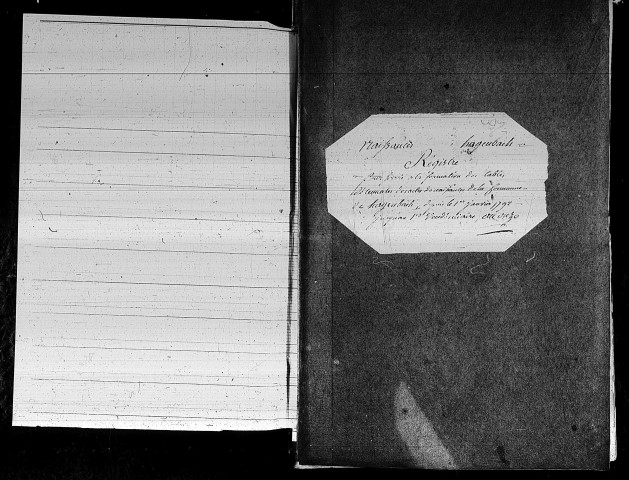 Naissances hagenbach
Régistre
Pour servir à la formation des tables
décennales des actes de naissances de la Commune
de hagenbach, depuis le 1er Janvier 1792
jusqu'au 1er Vendémiaire, an onze